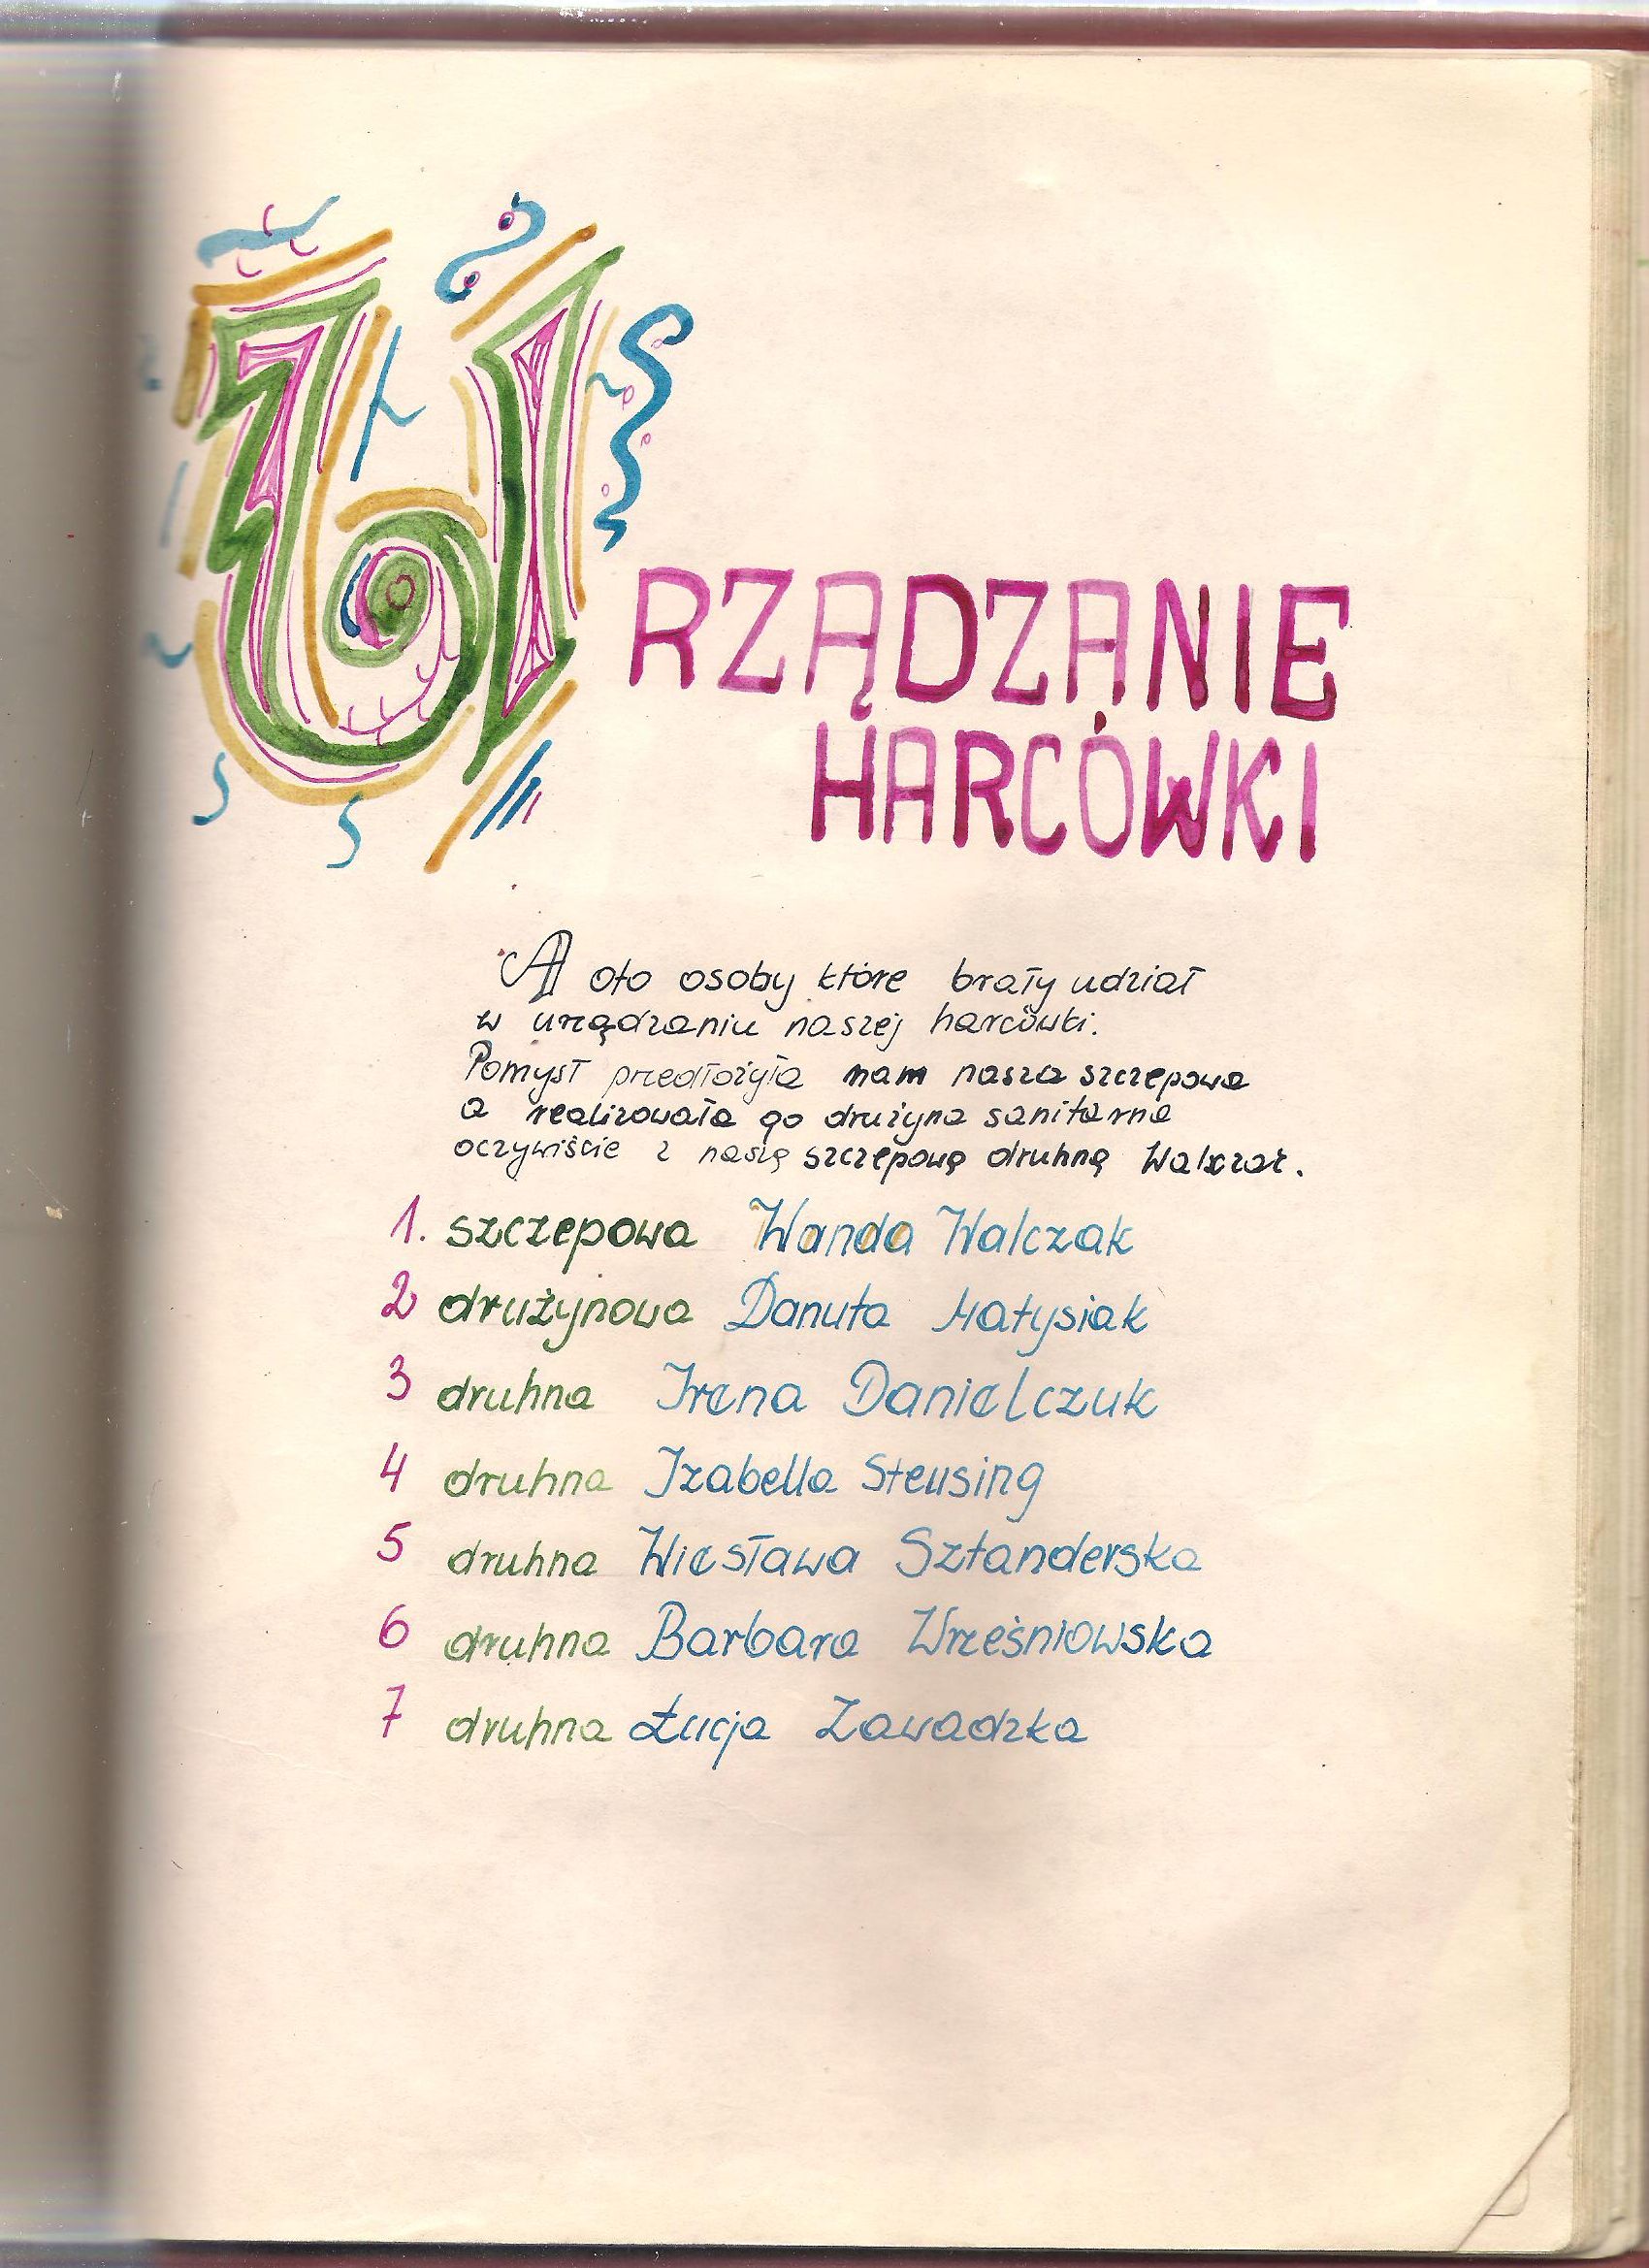 URZĄDZANIE
HARCÓWKI
A oto osoby które brały udział
w urządzaniu naszej harcówki.
Pomysł przedłożyła nam nasza szczepowa
a realizowała go drużyna sanitarna
oczywiście z naszą szczepową druhną
1. szczepowa Wanda Walczak
2 drużynowa Danuta Matysiak
3 druhna Irena Danielczuk
4 druhna Izabella Steusing
5 druhna Wiesława Sztanderska
6 druhna Barbara Wrześniowska
7 druhna Łucja Zawadzka